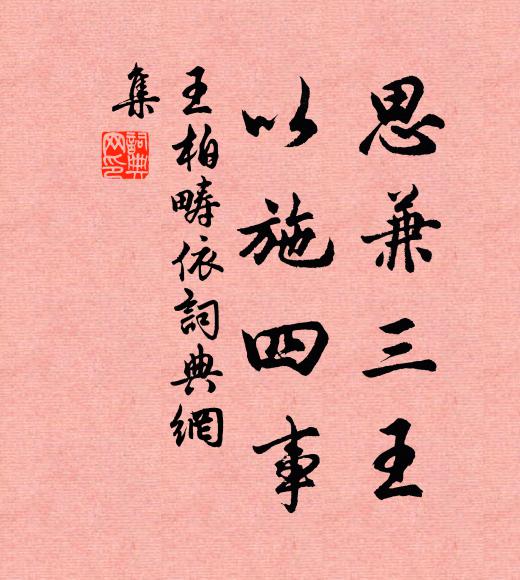 思兼三王
以施四事
王柏畴依詞典網
集
詞典
网印